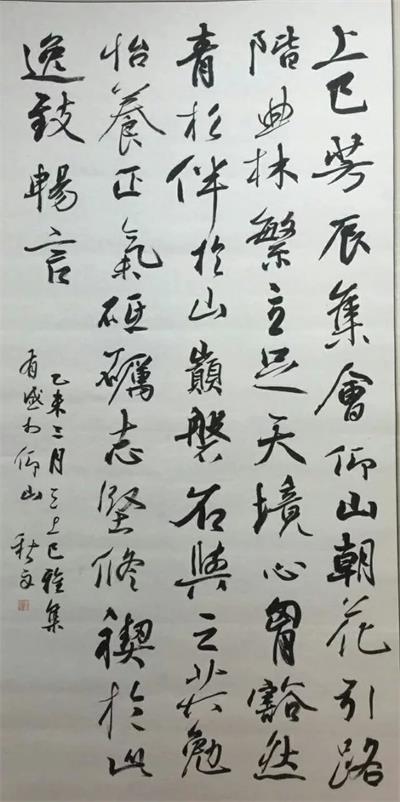 上巳芳辰集會仰山朝花引路
階曲林繁立足天境心胸豁然
青松伴於山巔磐石與之共勉
怡養正氣砥礪志堅修禊於此
逸致暢言
乙未三月三上巳雅集
有感於仰山 秋文